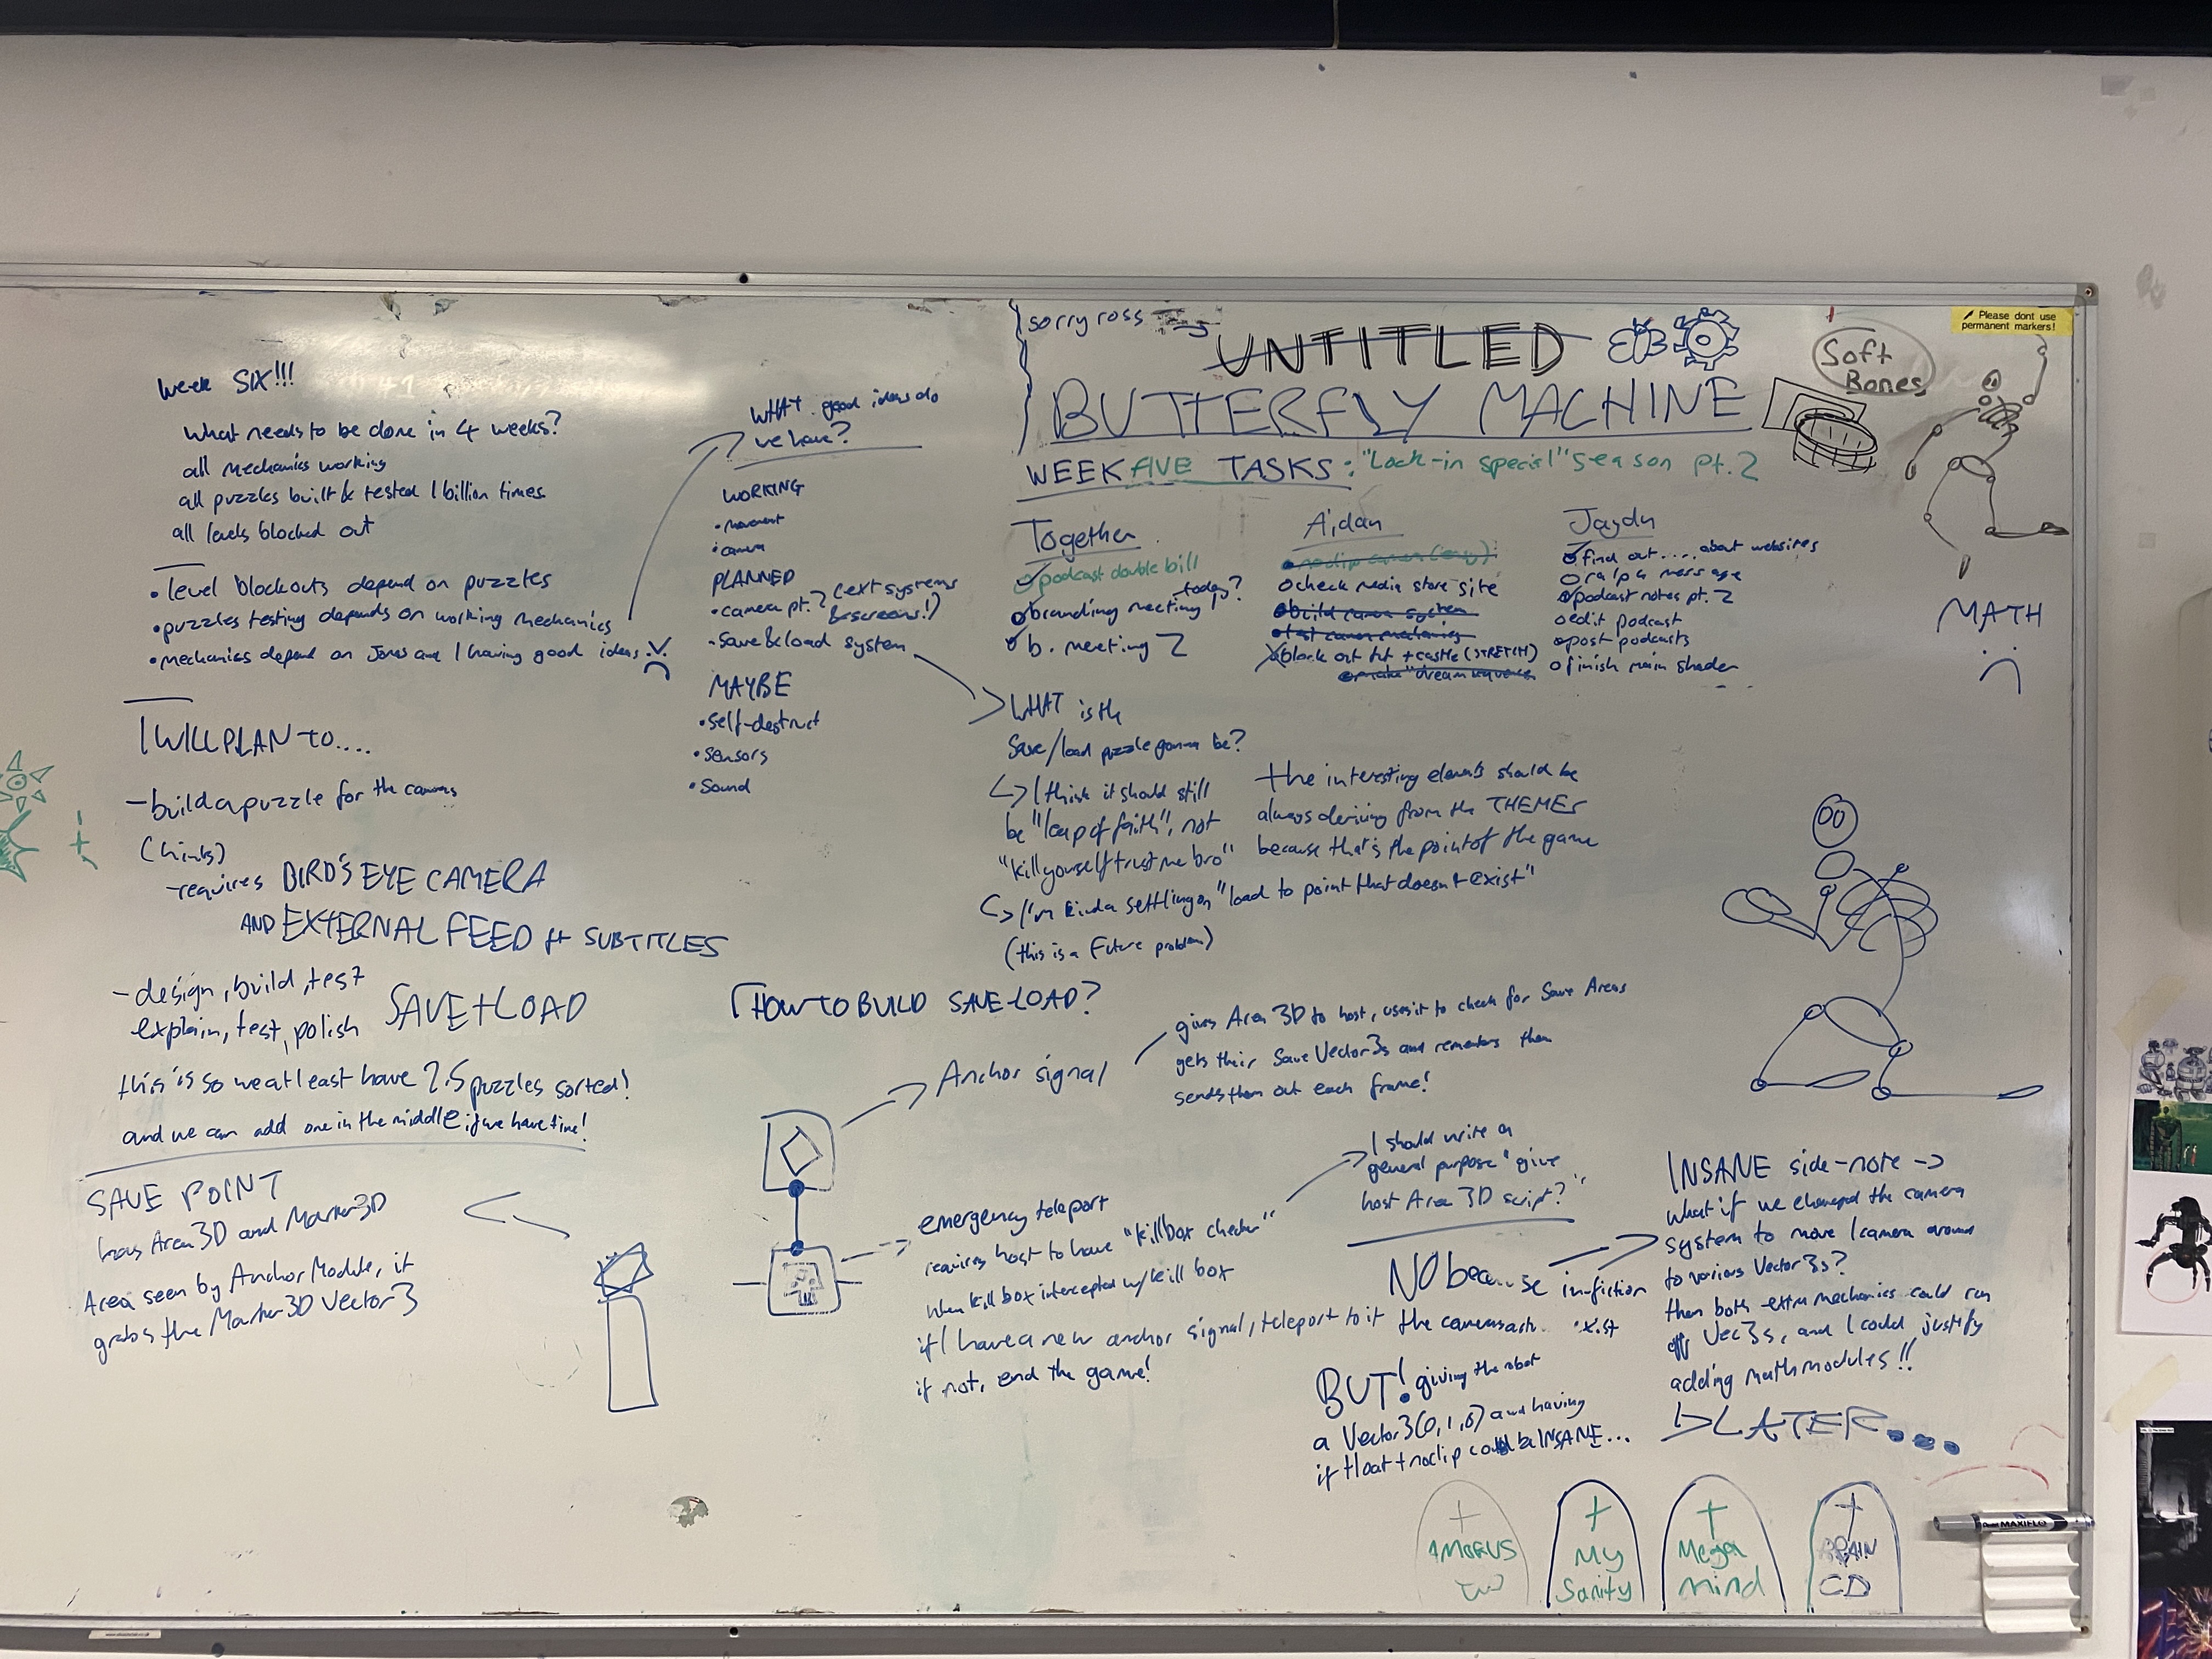 Week SIX!!!
What needs to be done in 4 weeks?
all mechanics working
all puzzles built & tested 1 billion times
all levels blocked out
• level blockouts depend on puzzles
• puzzles testing depends on working mechanics
• mechanics depend on Jonas and I having good ideas
I WILL PLAN to....
- build a puzzle for the cameras
(hints)
- requires BIRD'S EYE CAMERA
AND EXTERNAL FEED ft SUBTITLES
- design, build, test
explain, test, polish
SAVE + LOAD
this is so we at least have 2.5 puzzles sorted!
and we can add one in the middle if we have time!
SAVE POINT
has Area 3D and Marker3D
Area seen by Anchor Module, it
grabs the Marker3D Vector3
WHAT good ideas do
we have?
WORKING
• movement
• camera
PLANNED
• camera pt. 2 (ext systems
& screens!)
• save & load system
MAYBE
• self-destruct
• sensors
• sound
sorry ross
UNTITLED
BUTTERFLY MACHINE
WEEK FIVE TASKS: "Lock-in special" season pt. 2
Together
podcast double bill
branding meeting today?
b. meeting 2
Aidan
noclip camera
check media store site
build camera system
test camera mechanics
block out tut + castle (STRETCH)
make "dream sequence
Jaydn
find out .... about websites
ralph message
podcast notes pt. 2
edit podcast
post podcasts
finish main shader
Soft
Bones
Please dont use
permanent markers!
MATH
WHAT is the
Save/load puzzle gonna be?
I think it should still
be "leap of faith", not
"kill yourself trust me bro"
the interesting elements should be
always deriving from the THEMES
because that's the point of the game
I'm kinda settling on "load to point that doesn't exist"
(this is a future problem)
HOW TO BUILD SAVE-LOAD?
Anchor signal
gives Area 3D to host, uses it to check for Save Areas
gets their Save Vector3s and remembers them
sends them out each frame!
emergency teleport
requires host to have "killbox checker"
when kill box intercepted w/ kill box
if I have a new anchor signal, teleport to it
if not, end the game!
I should write a
general purpose "give
host Area 3D script?"
NO because in-fiction
the cameras exist
BUT! giving the robot
a Vector3(0,1,0) and having
it float + noclip could be INSANE...
INSANE side-note ->
What if we changed the camera
system to move 1 camera around
to various Vector3s?
then both extra mechanics could run
off Vec3s, and I could justify
adding math modules!!
LATER...
AMOGUS
My
Sanity
Mega
mind
BRAIN
CD
Pentel MAXIFLO